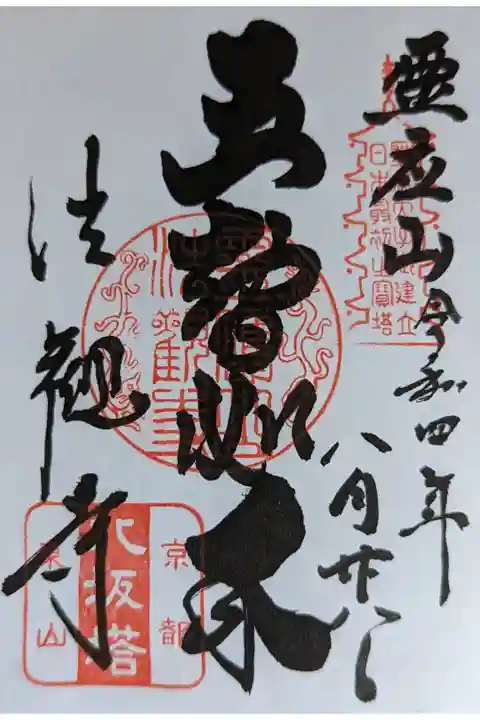 霊応山
令和四年
八月廿八日
五智如来
法観寺
日本最初之寶塔
京都
八坂塔
東山